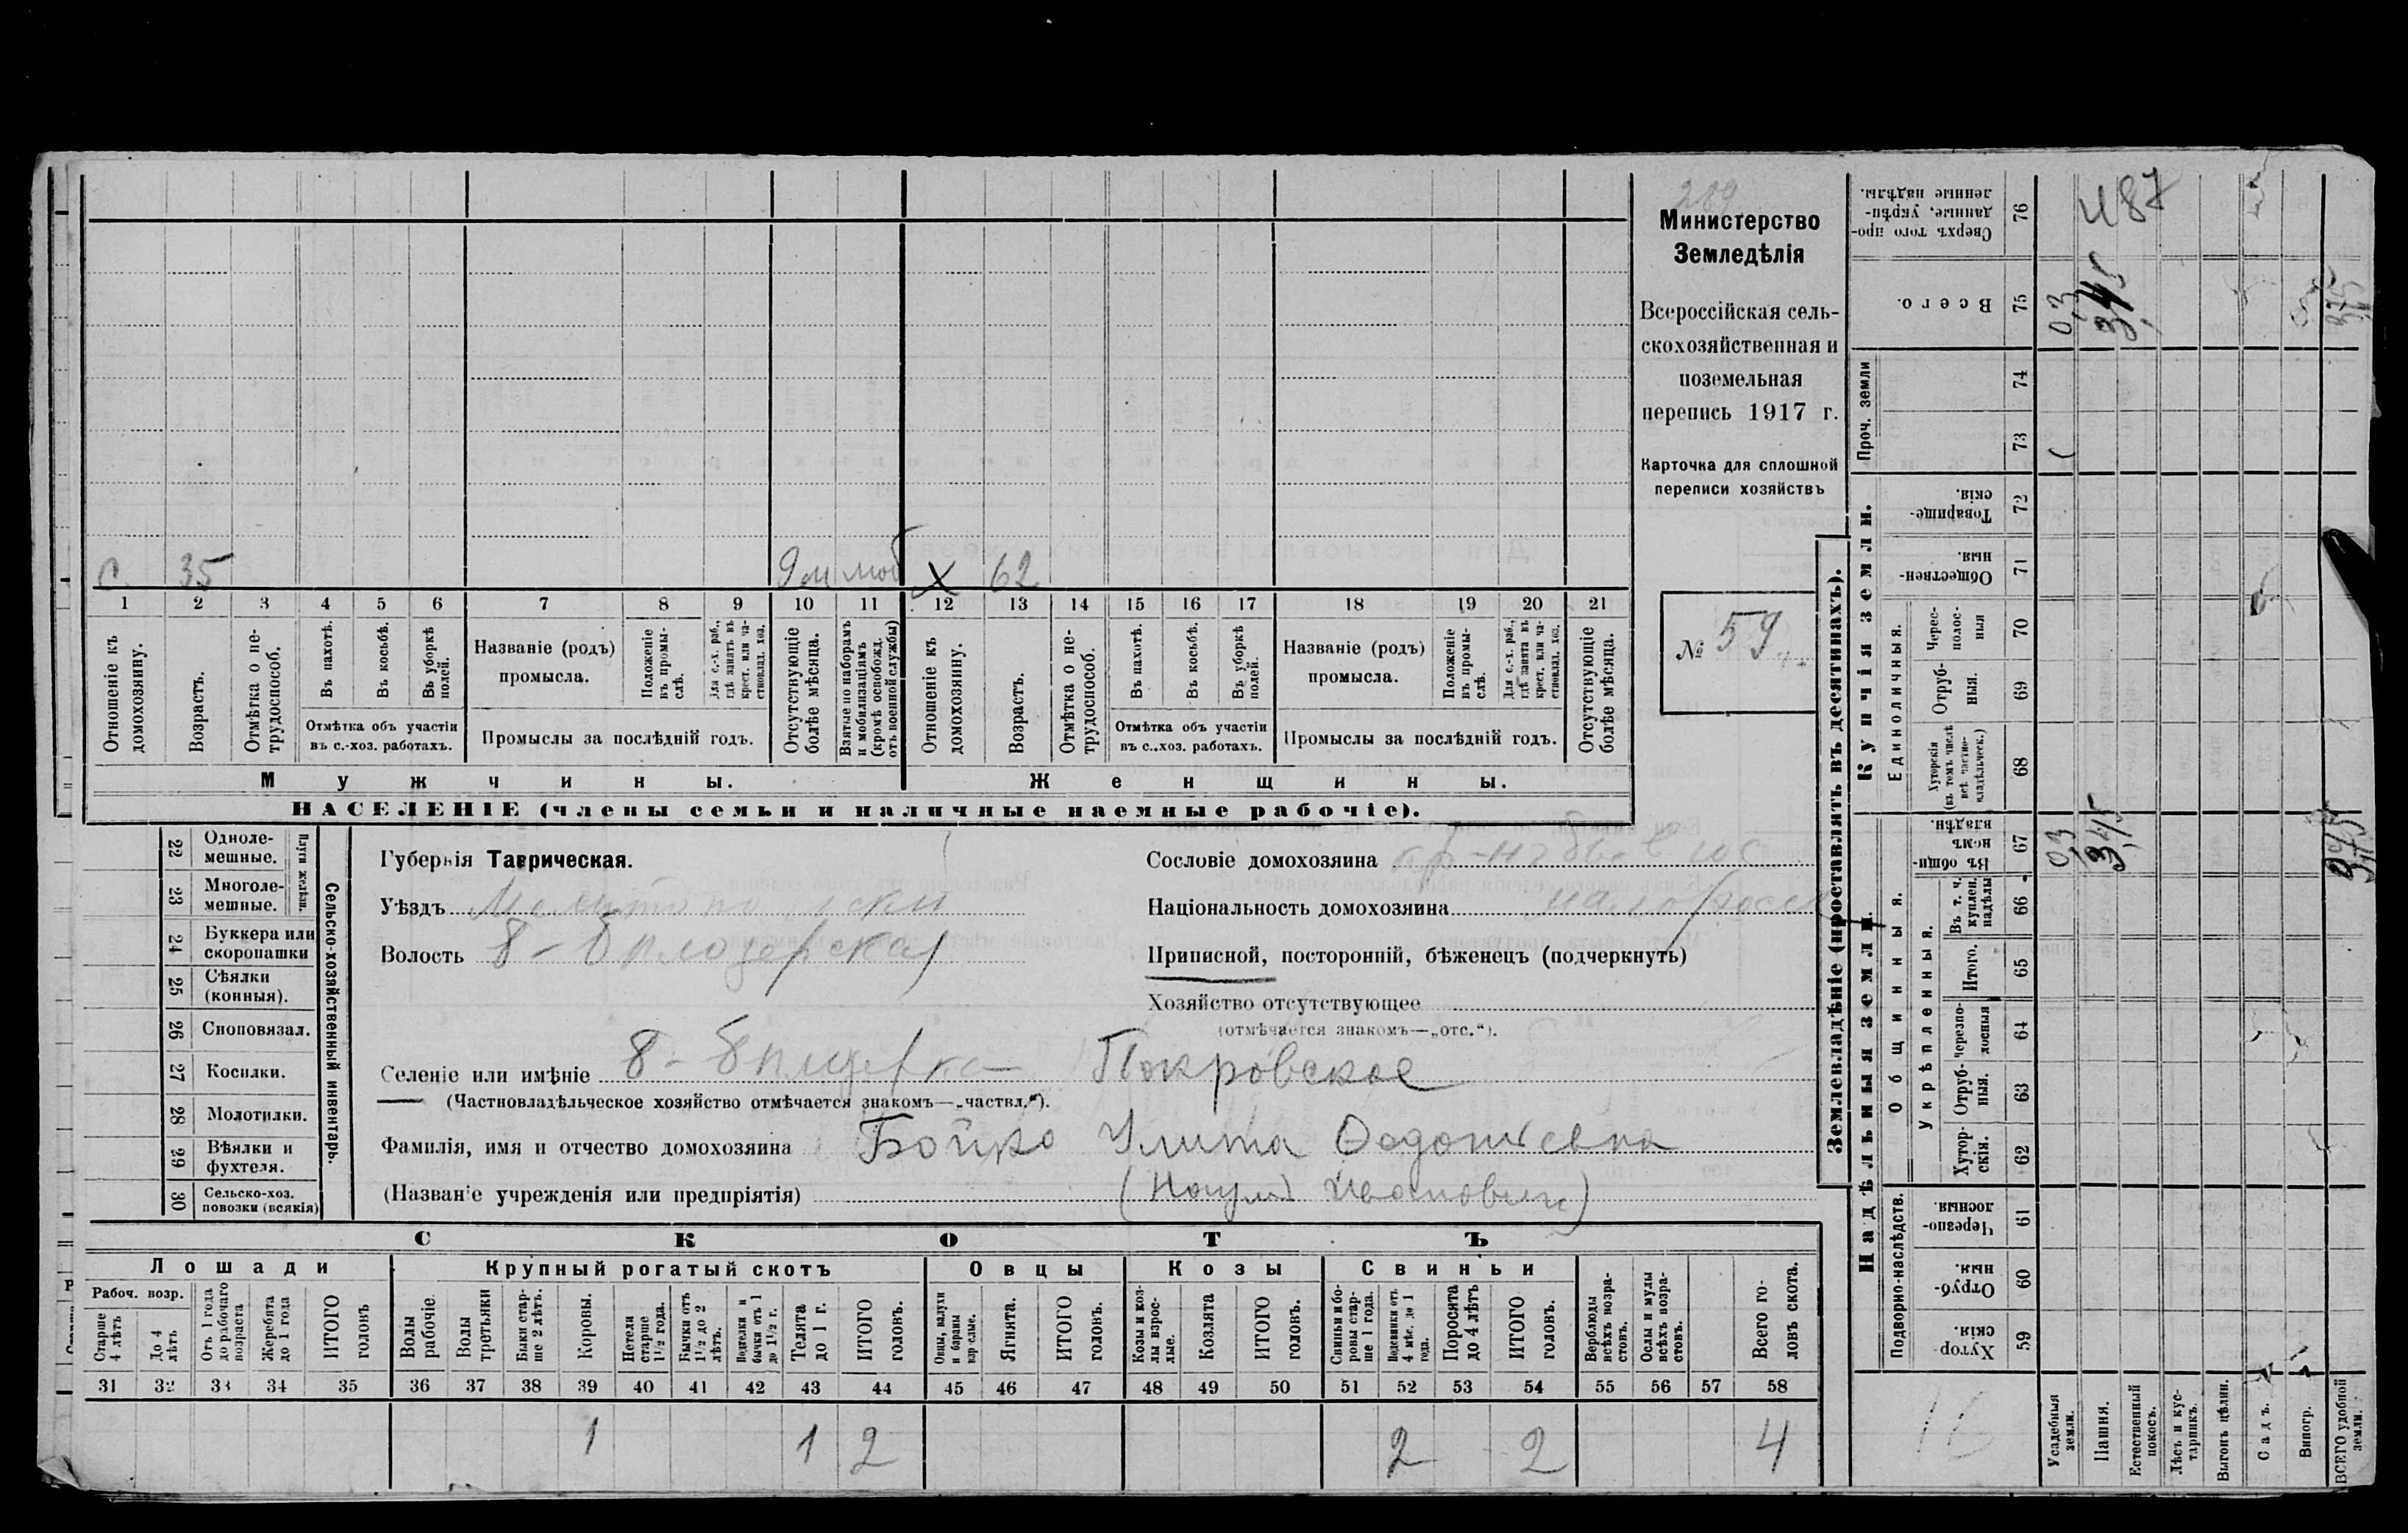 С. 35 9 м моб Х 62
1 2 3 4 5 6 7 8 9 10 11 12 13 14 15 16 17 18 19 20 21
Отношеніе къ домохозяину.
Возрастъ.
Отмѣтка о не-
трудоспособ.
Въ пахотѣ.
Въ косьбѣ.
Въ уборкѣ
полей.
Отмѣтка объ участіи
въ с.-хоз. работахъ.
Названіе (родъ)
промысла.
Положеніе
въ промы-
слѣ.
Для с.-х. раб.,
гдѣ занятъ въ
крест. или ча-
стновлад. хоз.
Промыслы за послѣдній годъ.
Отсутствующіе
болѣе мѣсяца.
Взятые по наборамъ
и мобилизаціямъ
(кромѣ освобожд.
отъ военной службы)
Отношеніе къ
домохозяину.
Возрастъ.
Отмѣтка о не-
трудоспособ.
Въ пахотѣ.
Въ косьбѣ.
Въ уборкѣ
полей.
Отмѣтка объ участіи
въ с.-хоз. работахъ.
Названіе (родъ)
промысла.
Положеніе
въ промы-
слѣ.
Для с.-х. раб.,
гдѣ занята въ
крест. или ча-
стновлад. хоз.
Промыслы за послѣдній годъ.
Отсутствующіе
болѣе мѣсяца.
Мужчины.
Женщины.
НАСЕЛЕНІЕ (члены семьи и наличные наемные рабочіе).
289
Министерство
Земледѣлія
Всероссійская сель-
скохозяйственная и
поземельная
перепись 1917 г.
Карточка для сплошной
переписи хозяйствъ
№ 59
22 Одноле-
мешные.
23 Многоле-
мешные.
Плуги желѣзн.
24 Буккера или
скоропашки
25 Сѣялки
(конныя).
26 Сноповязал.
27 Косилки.
28 Молотилки.
29 Вѣялки и
фухтеля.
30 Сельско-хоз.
повозки (всякія)
Сельско-хозяйственный инвентарь.
Губернія Таврическая.
Уѣздъ Мелитопольски
Волость 8-Бплозерская
Сословіе домохозяина
Національность домохозяина малоросс
Приписной, посторонній, бѣженецъ (подчеркнуть)
Хозяйство отсутствующее
(отмѣчается знакомъ—„отс.“).
Селеніе или имѣніе Покровское
(Частновладѣльческое хозяйство отмѣчается знакомъ—„частвл.“).
Фамилія, имя и отчество домохозяина Бойко Улита
(Названіе учрежденія или предпріятія) (Наумъ Ивановичъ)
СКОТЪ
Лошади
Рабоч. возр.
Старше
4 лѣтъ
До 4
лѣтъ
Отъ 1 года
до рабочаго
возраста
Жеребята
до 1 года
ИТОГО
головъ
Крупный рогатый скотъ
Волы
рабочіе.
Волы
третьяки
Быки стар-
ше 2 лѣтъ.
Коровы.
Нетели
старше
1½ года.
Бычки отъ
1½ до 2
лѣтъ.
Подтелки и
бычки отъ 1
до 1½ г.
Телята
до 1 г.
ИТОГО
головъ.
Овцы
Овцы, валухи
и бараны
взрослые.
Ягнята.
ИТОГО
головъ.
Козы
Козы и коз-
лы взрос-
лые.
Козлята
ИТОГО
головъ.
Свиньи
Свиньи и бо-
ровы стар-
ше 1 года.
Подсвинки отъ
4 мѣс. до 1
года.
Поросята
до 4 лѣтъ
ИТОГО
головъ.
Верблюды
всѣхъ возра-
стовъ.
Ослы и мулы
всѣхъ возра-
стовъ.
Всего го-
ловъ скота.
31 32 33 34 35 36 37 38 39 40 41 42 43 44 45 46 47 48 49 50 51 52 53 54 55 56 57 58
1 1 2 2 2 4
Землевладѣніе (проставлять въ десятинахъ).
Надѣльныя земли.
Купчія земли.
Проч. земли
Подворно-наслѣдств.
Общинныя.
Укрѣпленныя.
Единоличныя.
Сверхъ того про-
данные, укрѣп-
ленные надѣлы.
76
487
Всего.
75
0,3
345
74
73
Товарище-
скія.
72
Обществен-
ныя.
71
Черес-
полос-
ныя
70
Отруб-
ныя.
69
Хуторскія
(въ томъ числѣ
всѣ частно-
владѣльческ.)
68
Въ общи-
номъ
владѣн.
67
0,3
345
Въ т. ч.
куплен.
надѣлы
66
Итого.
65
Черезпо-
лосныя
64
Отруб-
ныя.
63
Хутор-
скія.
62
Черезпо-
лосныя.
61
Отруб-
ныя.
60
Хутор-
скія.
59
Усадебныя
земли.
Пашня.
Естественный
покосъ.
Лѣсъ и кус-
тарникъ.
Выгонъ цѣлин.
Садъ.
Виногр.
ВСЕГО удобной
земли.